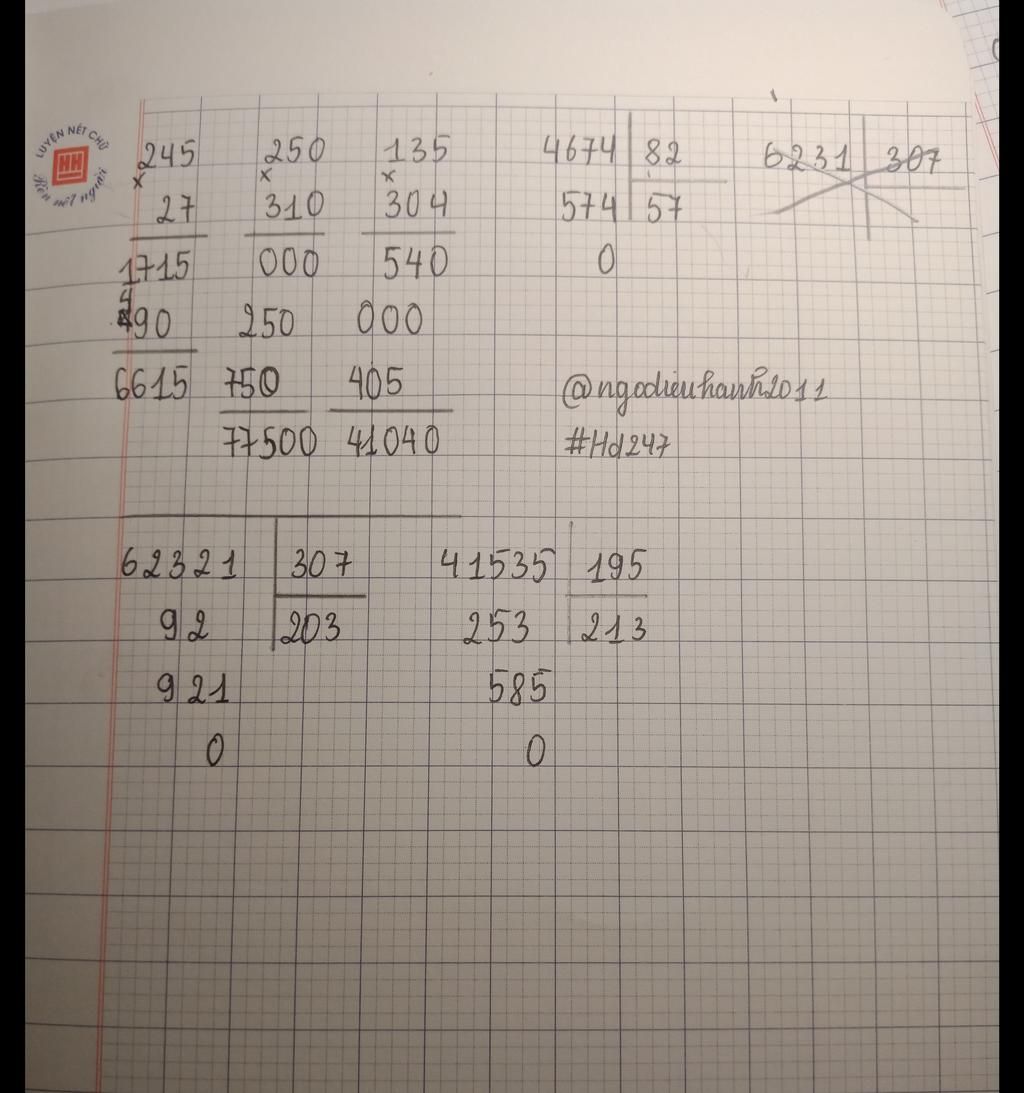 LUYỆN NÉT CHỮ
HH
Rèn nết người
245 250 135 4674 82 6231 307
x x x
27 310 304 574 57
1715 000 540 0
490 250 000
6615 750 405 @ngodieuhanh2011
77500 41040 #Hd247
62321 307 41535 195
92 203 253 213
921 585
0 0